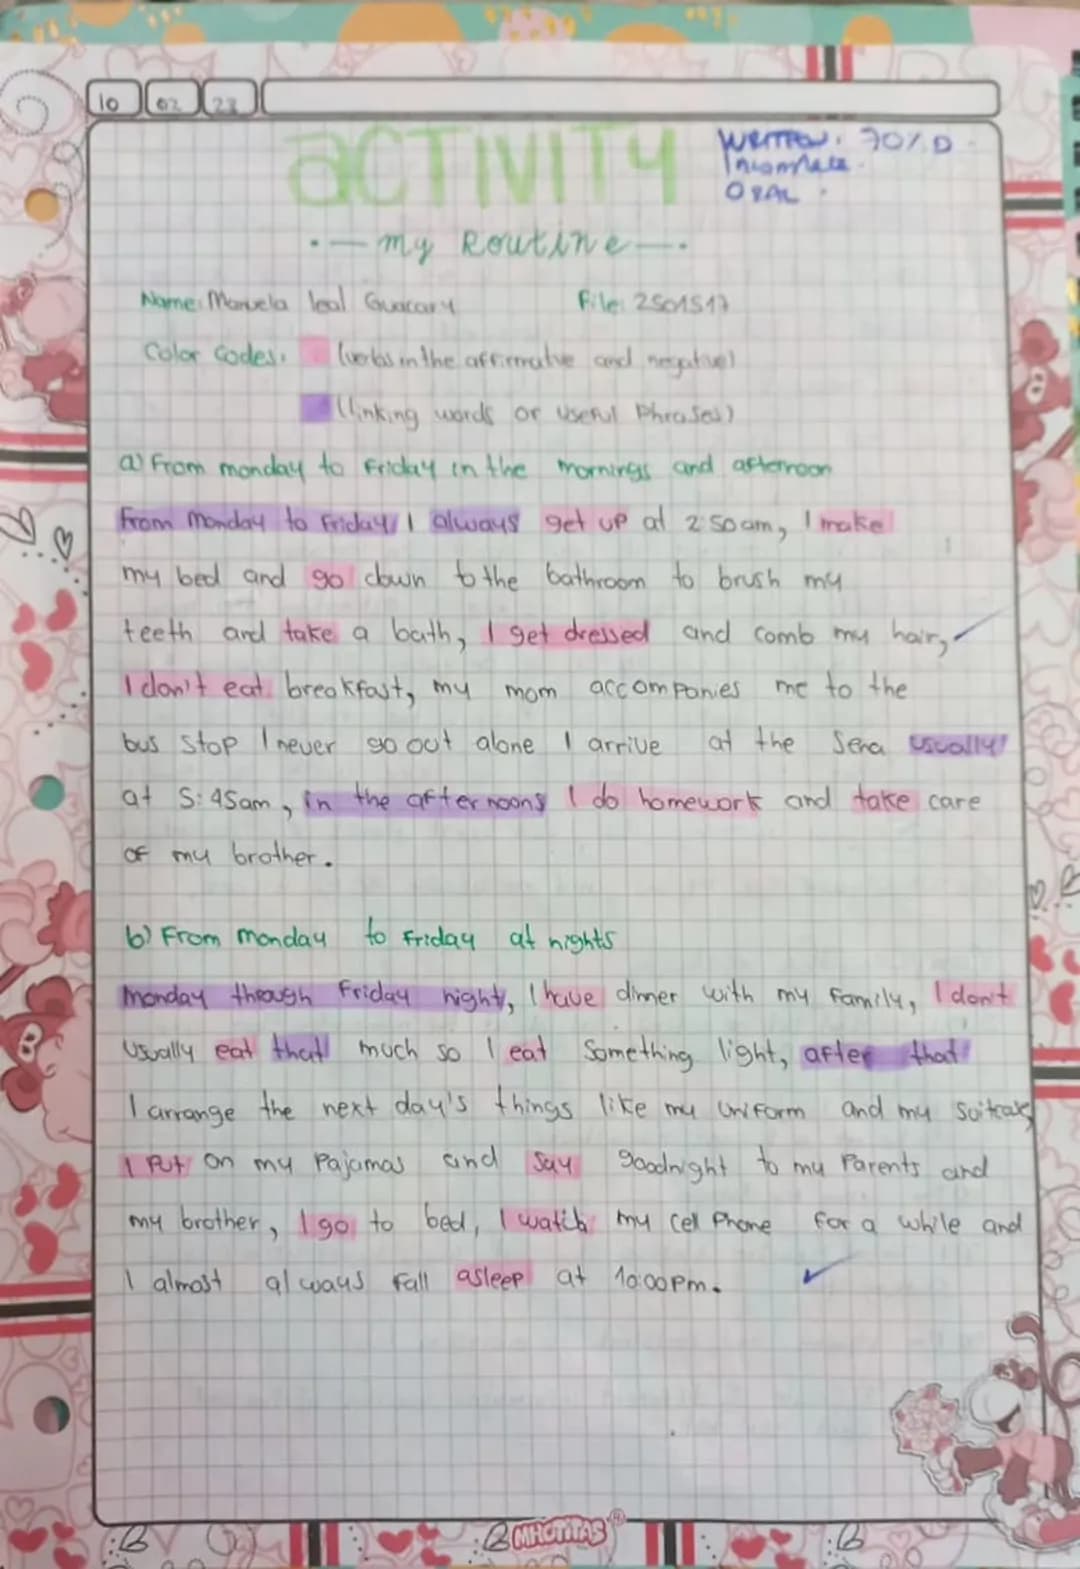 10 02 23
ACTIVITY
WRITTEN: 70% D
Incomplete.
ORAL.
my Routine
Name: Manuela leal Guacary File: 2501517
Color Codes: (verbs in the affirmative and negative)
(linking words or useful Phrases)
a) From monday to Friday in the mornings and afternoon
From Monday to Friday I always get up at 2:50am, I make
my bed and go down to the bathroom to brush my
teeth and take a bath, I get dressed and comb my hair,
I don't eat breakfast, my mom accompanies me to the
bus stop I never go out alone I arrive at the Sena usually
at 5:45am, in the afternoons I do homework and take care
of my brother.
b) From monday to Friday at nights
Monday through Friday night, I have dinner with my family, I don't
usually eat that much so I eat something light, after that
I arrange the next day's things like my uniform and my
I put on my Pajamas and say goodnight to my Parents and
my brother, I go to bed, I watch my cell Phone for a while and
I almost always fall asleep at 10:00pm.
MHOTITAS